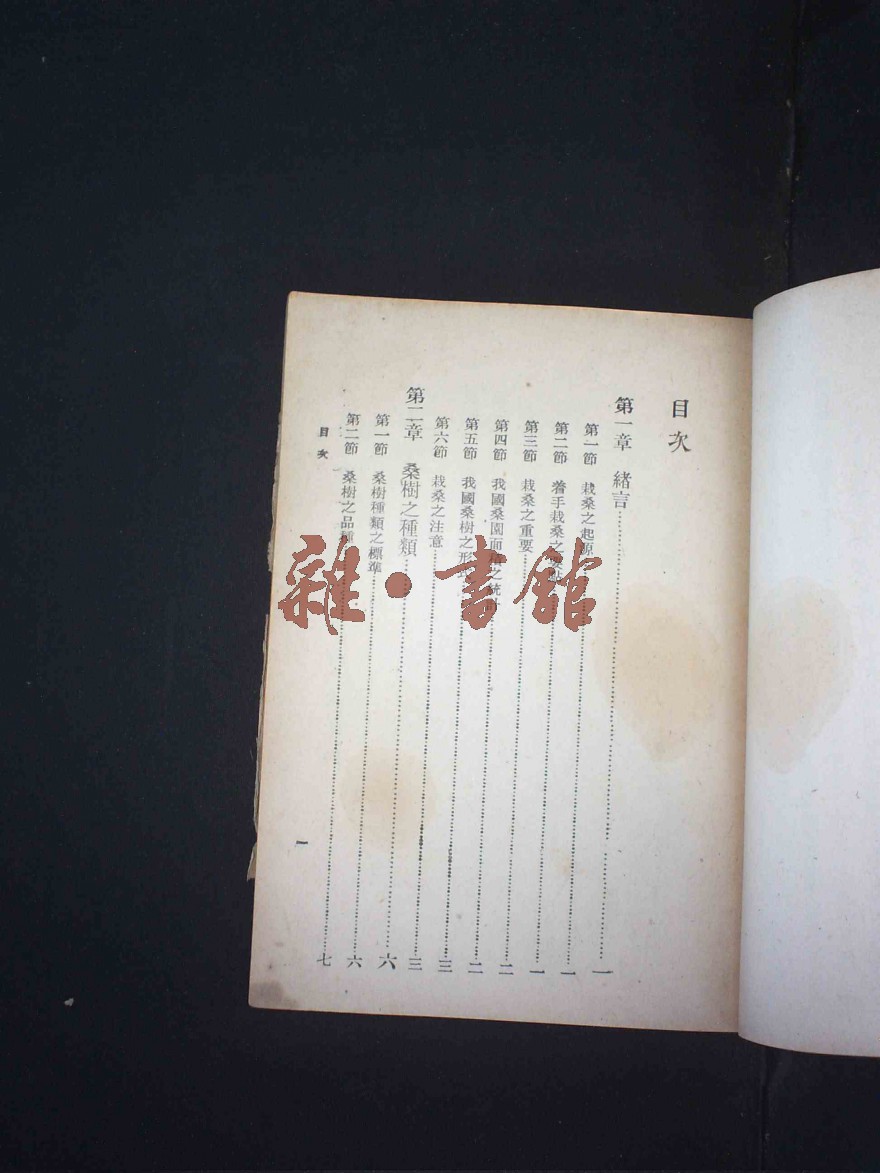 目次
第一章 緒言……一
第一節 栽桑之起源……一
第二節 着手栽桑之……一
第三節 栽桑之重要……二
第四節 我國桑園面積之統計……二
第五節 我國桑樹之形……三
第六節 栽桑之注意……三
第二章 桑樹之種類……六
第一節 桑樹種類之標準……六
第二節 桑樹之品種……七
目次
一
雜·書館